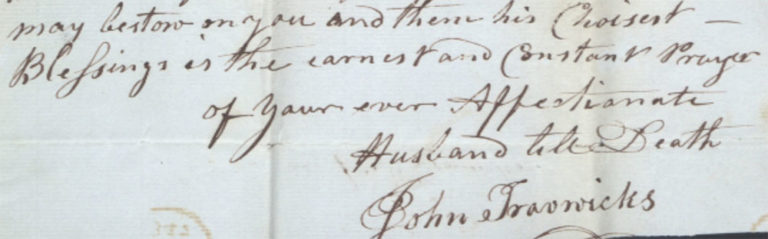 may bestow on you and them his Choisest –
Blessings is the earnest and Constant Prayer
of your ever Affectionate
Husband till Death
John Travwicks